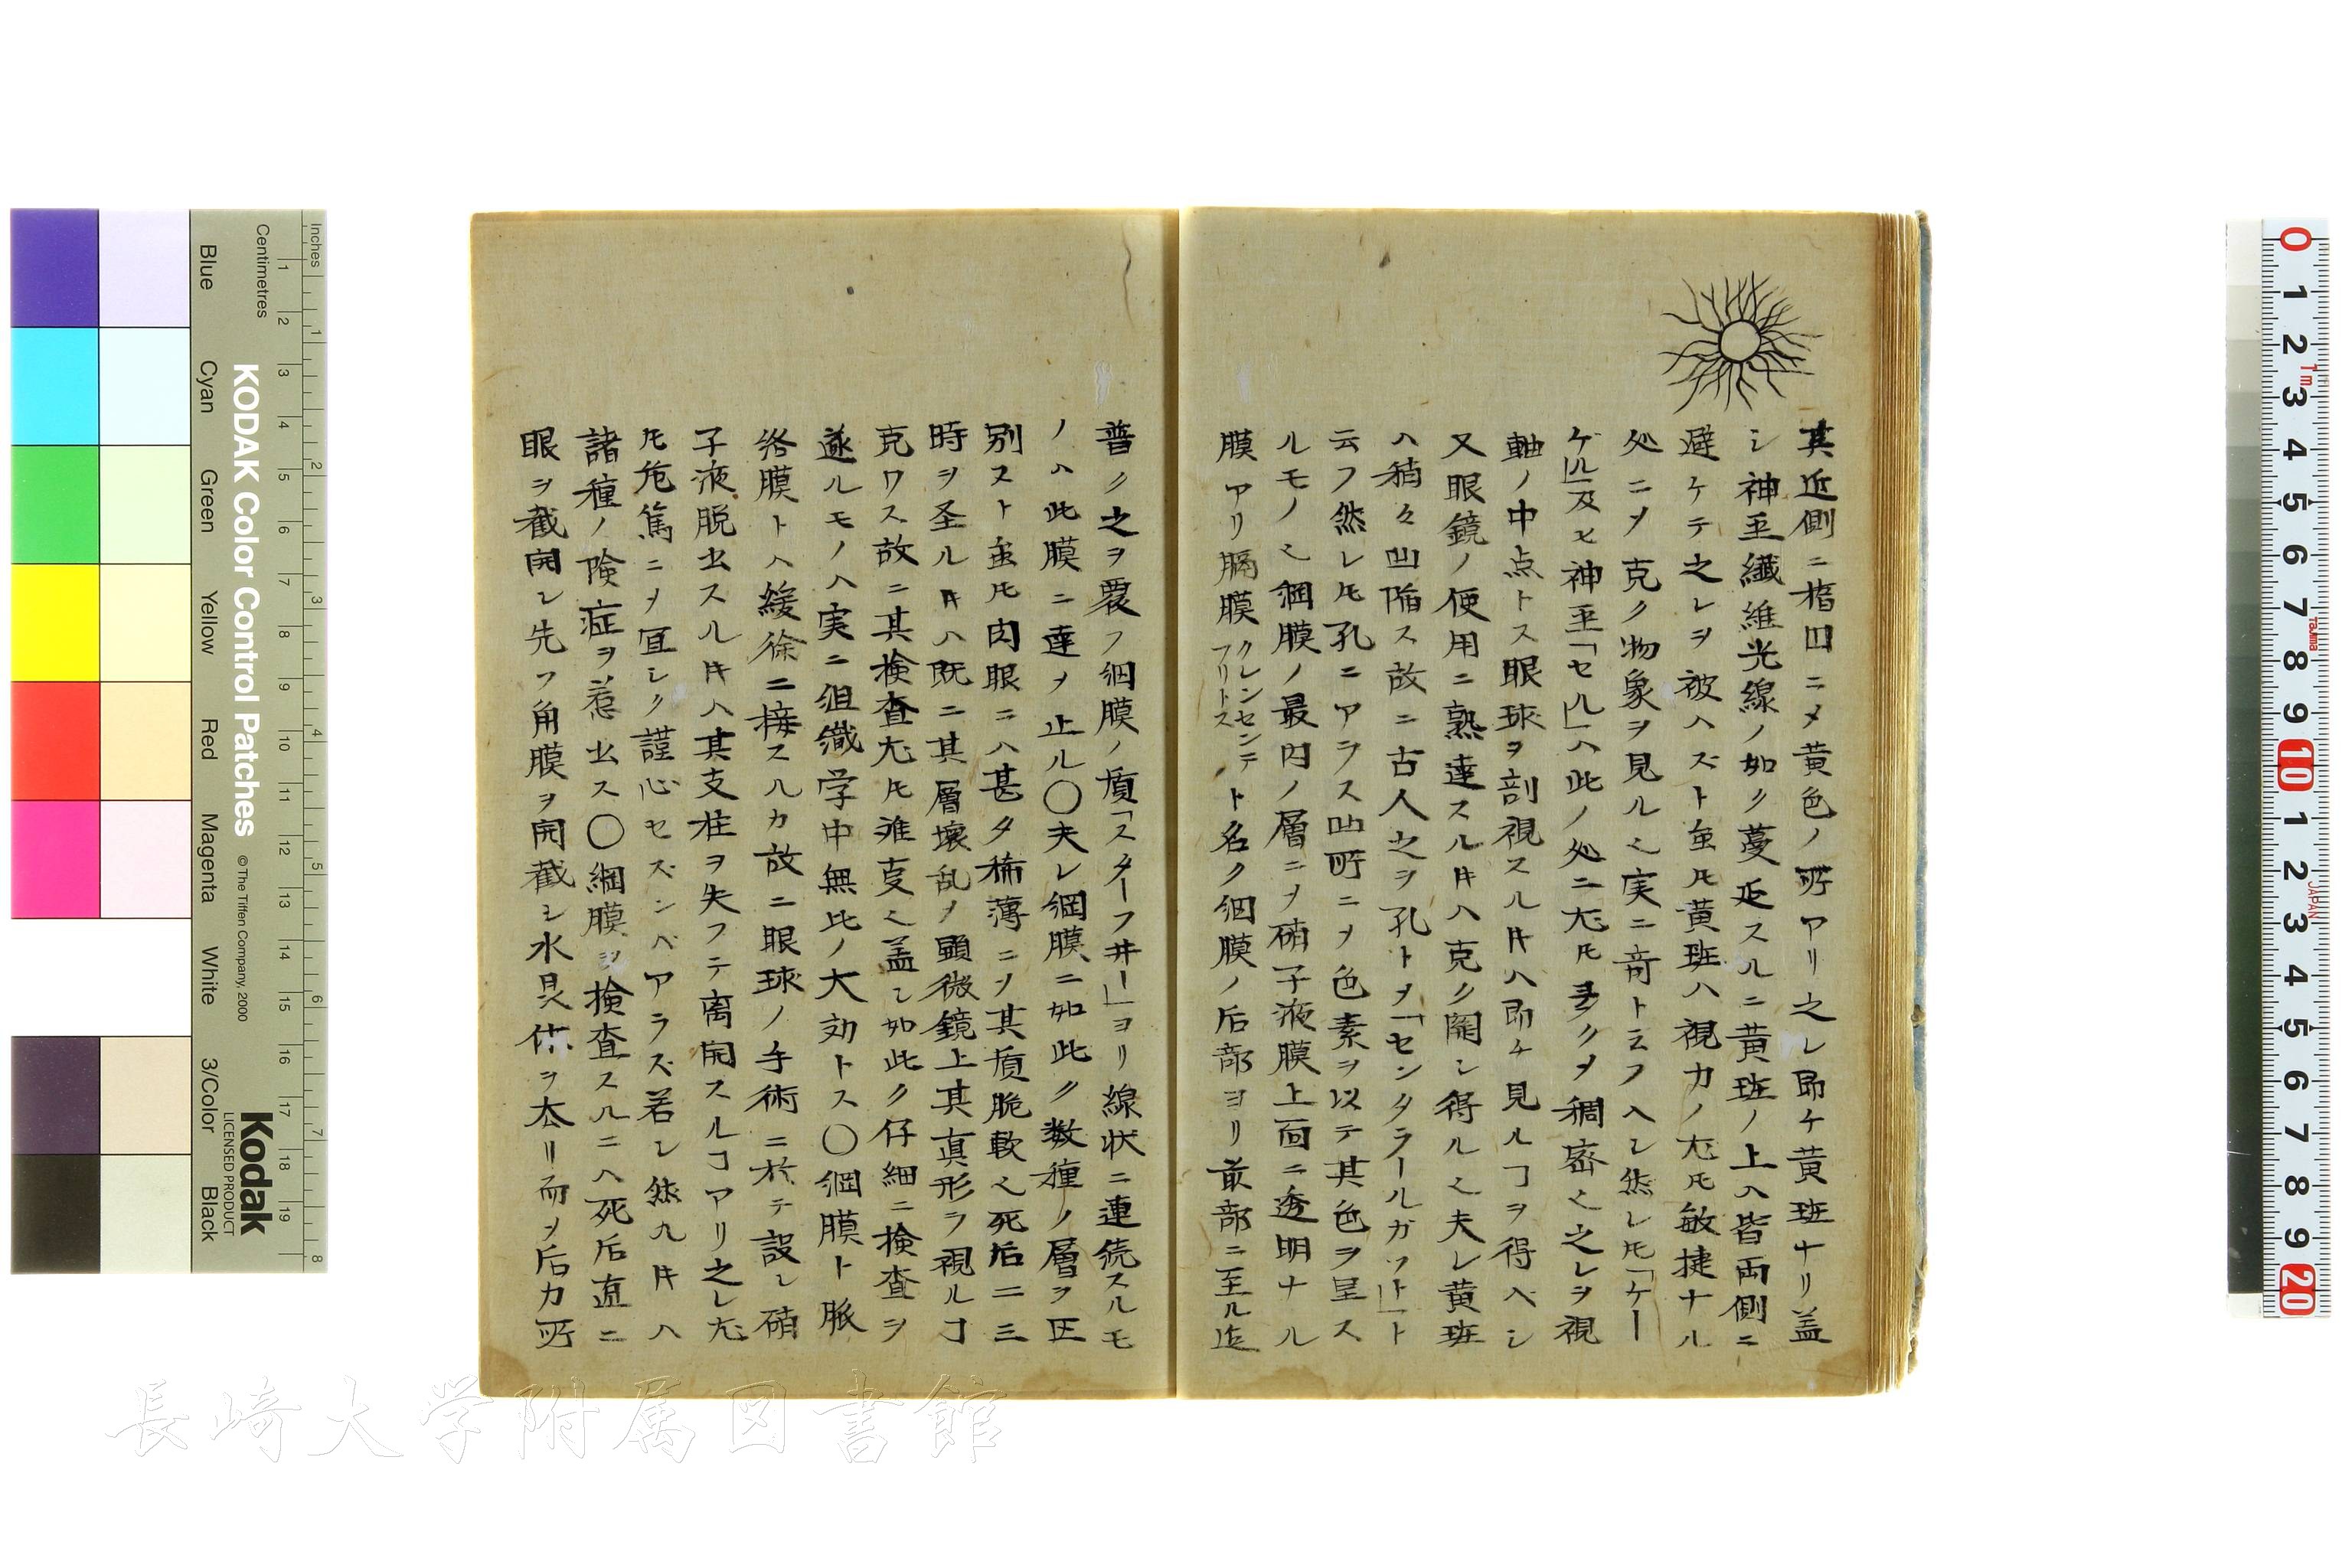 其近側ニ楕凹ニ〆黄色ノ所アリ之レ即ケ黄斑ナリ盖
シ神圣纎維光線ノ如ク蔓延スルニ黄斑ノ上ハ皆両側ニ
避ケテ之レヲ被ハズト虽𪜈黄斑ハ視力ノ尤𪜈敏捷ナル
処ニ〆克ク物象ヲ見ル〻実ニ奇ト云フヘシ然レ𪜈「ケー
ゲル」及ヒ神圣「セル」ハ此ノ処ニ尤𪜈多ク〆稠密〻之レヲ視
軸ノ中点トス眼球ヲ剖視スル𪜀ハ即ケ見ルヿヲ得ベシ
又眼鏡ノ使用ニ熟達スル𪜀ハ克ク闚シ得ル〻夫レ黄斑
ハ稍々凹陥ス故ニ古人之ヲ孔ト〆「センタラールガット」ト
云フ然レ𪜈孔ニアラス凹所ニ〆色素ヲ以テ其色ヲ呈ス
ルモノ〻網膜ノ最内ノ層ニ〆硝子液膜上面ニ透明ナル
膜アリ膈膜クレンセンデフリトスト名ク網膜ノ后部ヨリ前部ニ至ル迄
普ク之ヲ覆フ網膜ノ質「スターフ井ー」ヨリ線状ニ連続スルモ
ノハ此膜ニ達〆止ル〇夫レ網膜ニ如此ク数種ノ層ヲ区
別スト虽𪜈肉眼ニハ甚タ稀薄ニ〆其質脆軟〻死后二三
時ヲ圣ル𪜀ハ既ニ其層壊乱〆顕微鏡上其真形ヲ視ルヿ
克ワス故ニ其検査尤𪜈难叓〻盖シ如此ク仔細ニ検査ヲ
遂ルモノハ実ニ组織学中無比ノ大効トス〇網膜ト脈
絡膜トハ緩徐ニ接スルカ故ニ眼球ノ手術ニ於テ誤レ硝
子液脱出スル𪜀ハ其支柱ヲ失フテ离開スルヿアリ之レ尤
𪜈危篤ニ〆冝シク謹心セズンベアラズ若シ然ル𪜀ハ
諸種ノ険症ヲ惹出ス〇網膜ヲ検査スルニハ死后直ニ
眼ヲ截開シ先ツ角膜ヲ開截シ水晶体ヲ去リ而〆后カ所
Blue
Cyan
Green
Yellow
Red
Magenta
White
3/Color
Black
Centimetres
Inches
KODAK Color Control Patches
© The Tiffen Company, 2000
Kodak
LICENSED PRODUCT
長崎大学附属図書館